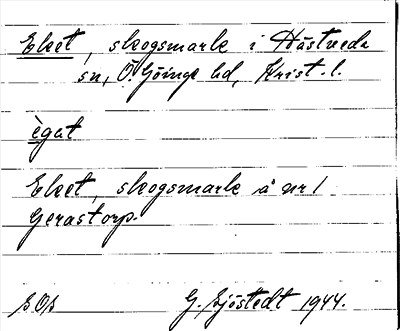 Eket, skogsmark i Hästveda
sn, Ö. Göinge hd, Krist. l.
ègat
Eket, skogsmark å nr 1
Gerastorp.
SOs G. Sjöstedt 1944.